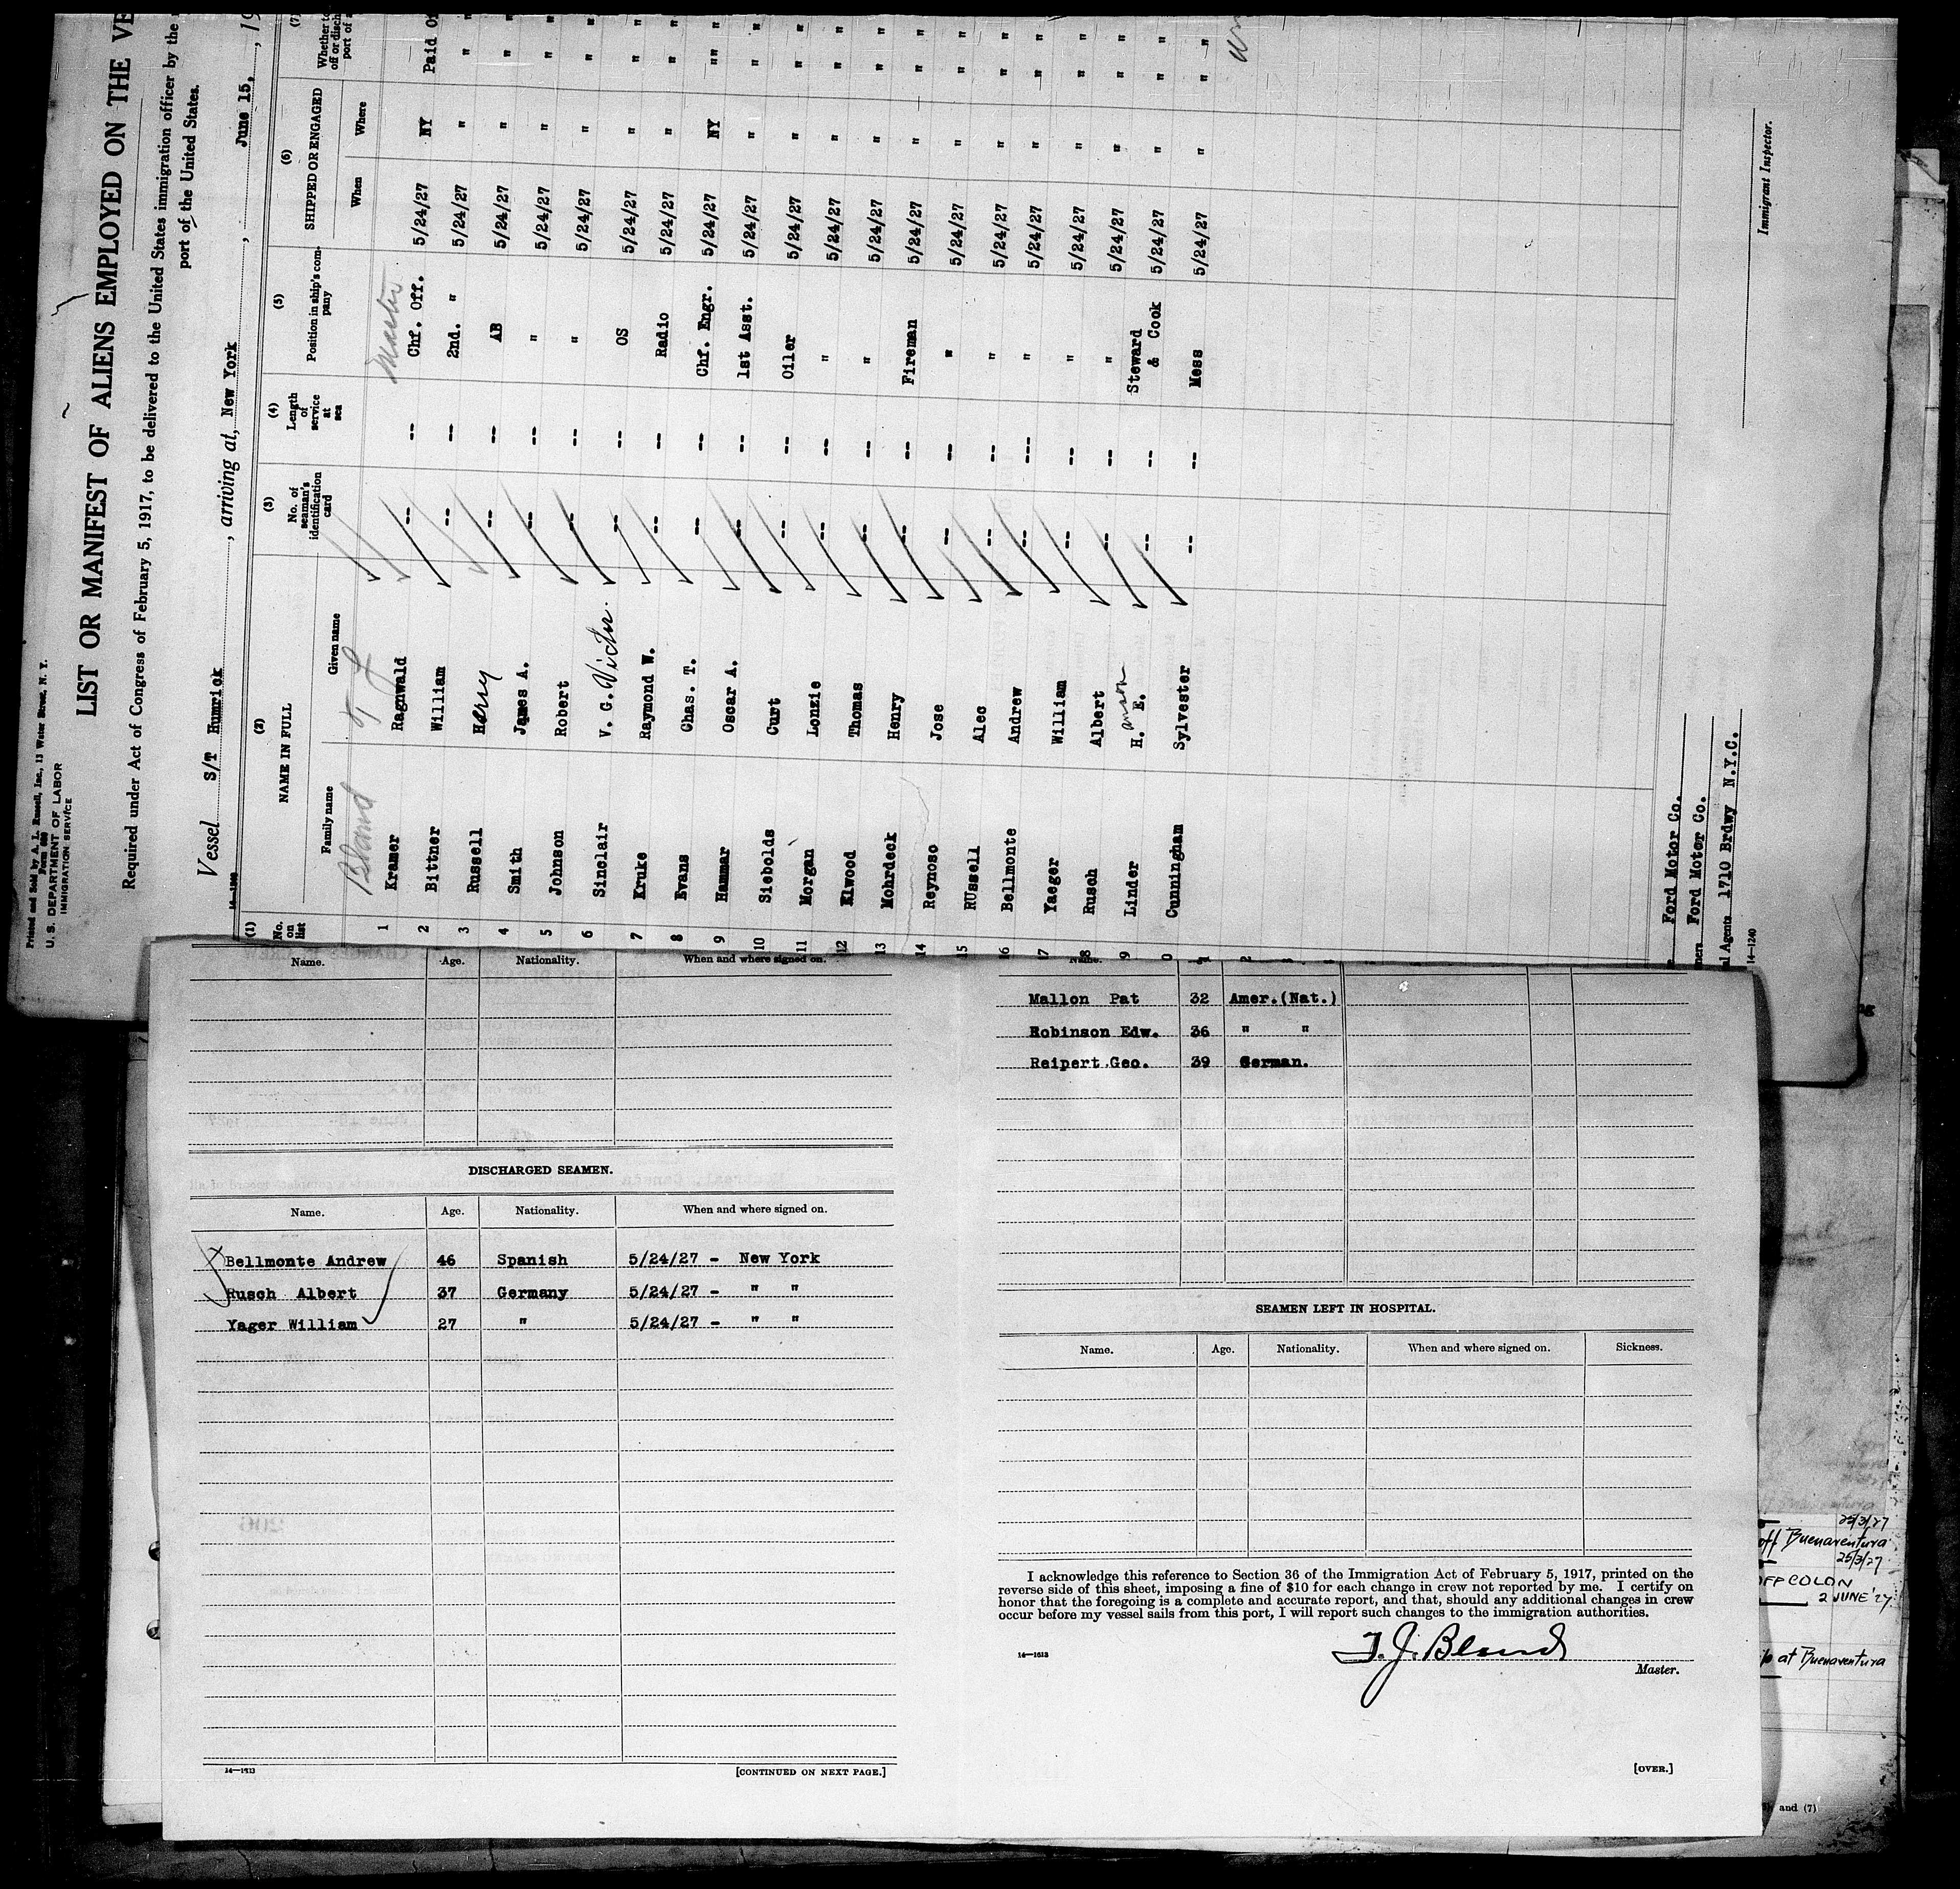 Printed and Sold by A. L. Russell, Inc., 13 Water Street, N. Y.
U. S. DEPARTMENT OF LABOR
IMMIGRATION SERVICE
LIST OR MANIFEST OF ALIENS EMPLOYED ON THE VE
Required under Act of Congress of February 5, 1917, to be delivered to the United States immigration officer by the
port of the United States.
Vessel S/T Humrick, arriving at, New York, June 15, 19
(1) (2) (3) (4) (5) (6) (7)
No. on list NAME IN FULL No. of seaman's identification card Length of service at sea Position in ship's company SHIPPED OR ENGAGED
Family name Given name When Where
Bland T J Master
1 Kramer Ragnwald -- -- Chf. Off. 5/24/27 NY Paid Of
2 Bittner William -- -- 2nd. " 5/24/27 " " "
3 Russell Harry -- -- AB 5/24/27 " " "
4 Smith James A. -- -- " 5/24/27 " " "
5 Johnson Robert -- -- " 5/24/27 " " "
6 Sinclair V. G. Victor. -- -- OS 5/24/27 " " "
7 Kruke Raymond W. -- -- Radio 5/24/27 " " "
8 Evans Chas. T. -- -- Chf. Engr. 5/24/27 NY "" "
9 Hammar Oscar A. -- -- 1st Asst. 5/24/27 " " "
10 Siebolds Curt -- -- Oiler 5/24/27 " " "
11 Morgan Lonzie -- -- " 5/24/27 " " "
12 Elwood Thomas -- -- " 5/24/27 " " "
13 Mohrdeck Henry -- -- Fireman 5/24/27 " " "
14 Reynoso Jose -- -- " 5/24/27 " " "
15 RUssell Alec -- -- " 5/24/27 " " "
16 Bellmonte Andrew -- --- " 5/24/27 " " "
17 Yaeger William -- -- " 5/24/27 " " "
8 Rusch Albert -- -- " 5/24/27 " " "
9 Linder H. E. -- -- Steward & Cook 5/24/27 " " "
0 Cunningham Sylvester -- -- Mess 5/24/27 " " "
Ford Motor Co.
Ford Motor Co.
al Agents 1710 Brdwy N.Y.C.
14—1240
Immigrant Inspector.
Name. Age. Nationality. When and where signed on.
DISCHARGED SEAMEN.
Name. Age. Nationality. When and where signed on.
Bellmonte Andrew 46 Spanish 5/24/27 - New York
Rusch Albert 37 Germany 5/24/27 - " "
Yager William 27 " 5/24/27 - " "
[CONTINUED ON NEXT PAGE.]
Name.
Mallon Pat 32 Amer.(Nat.)
Robinson Edw. 36 " "
Reipert Geo. 39 German.
SEAMEN LEFT IN HOSPITAL.
Name. Age. Nationality. When and where signed on. Sickness.
I acknowledge this reference to Section 36 of the Immigration Act of February 5, 1917, printed on the
reverse side of this sheet, imposing a fine of $10 for each change in crew not reported by me. I certify on
honor that the foregoing is a complete and accurate report, and that, should any additional changes in crew
occur before my vessel sails from this port, I will report such changes to the immigration authorities.
14—1613
T. J. Bland
Master.
[OVER.]
off Buenaventura
25/3/27
OFF COLON
2 JUNE '27
at Buenaventura
and (7)